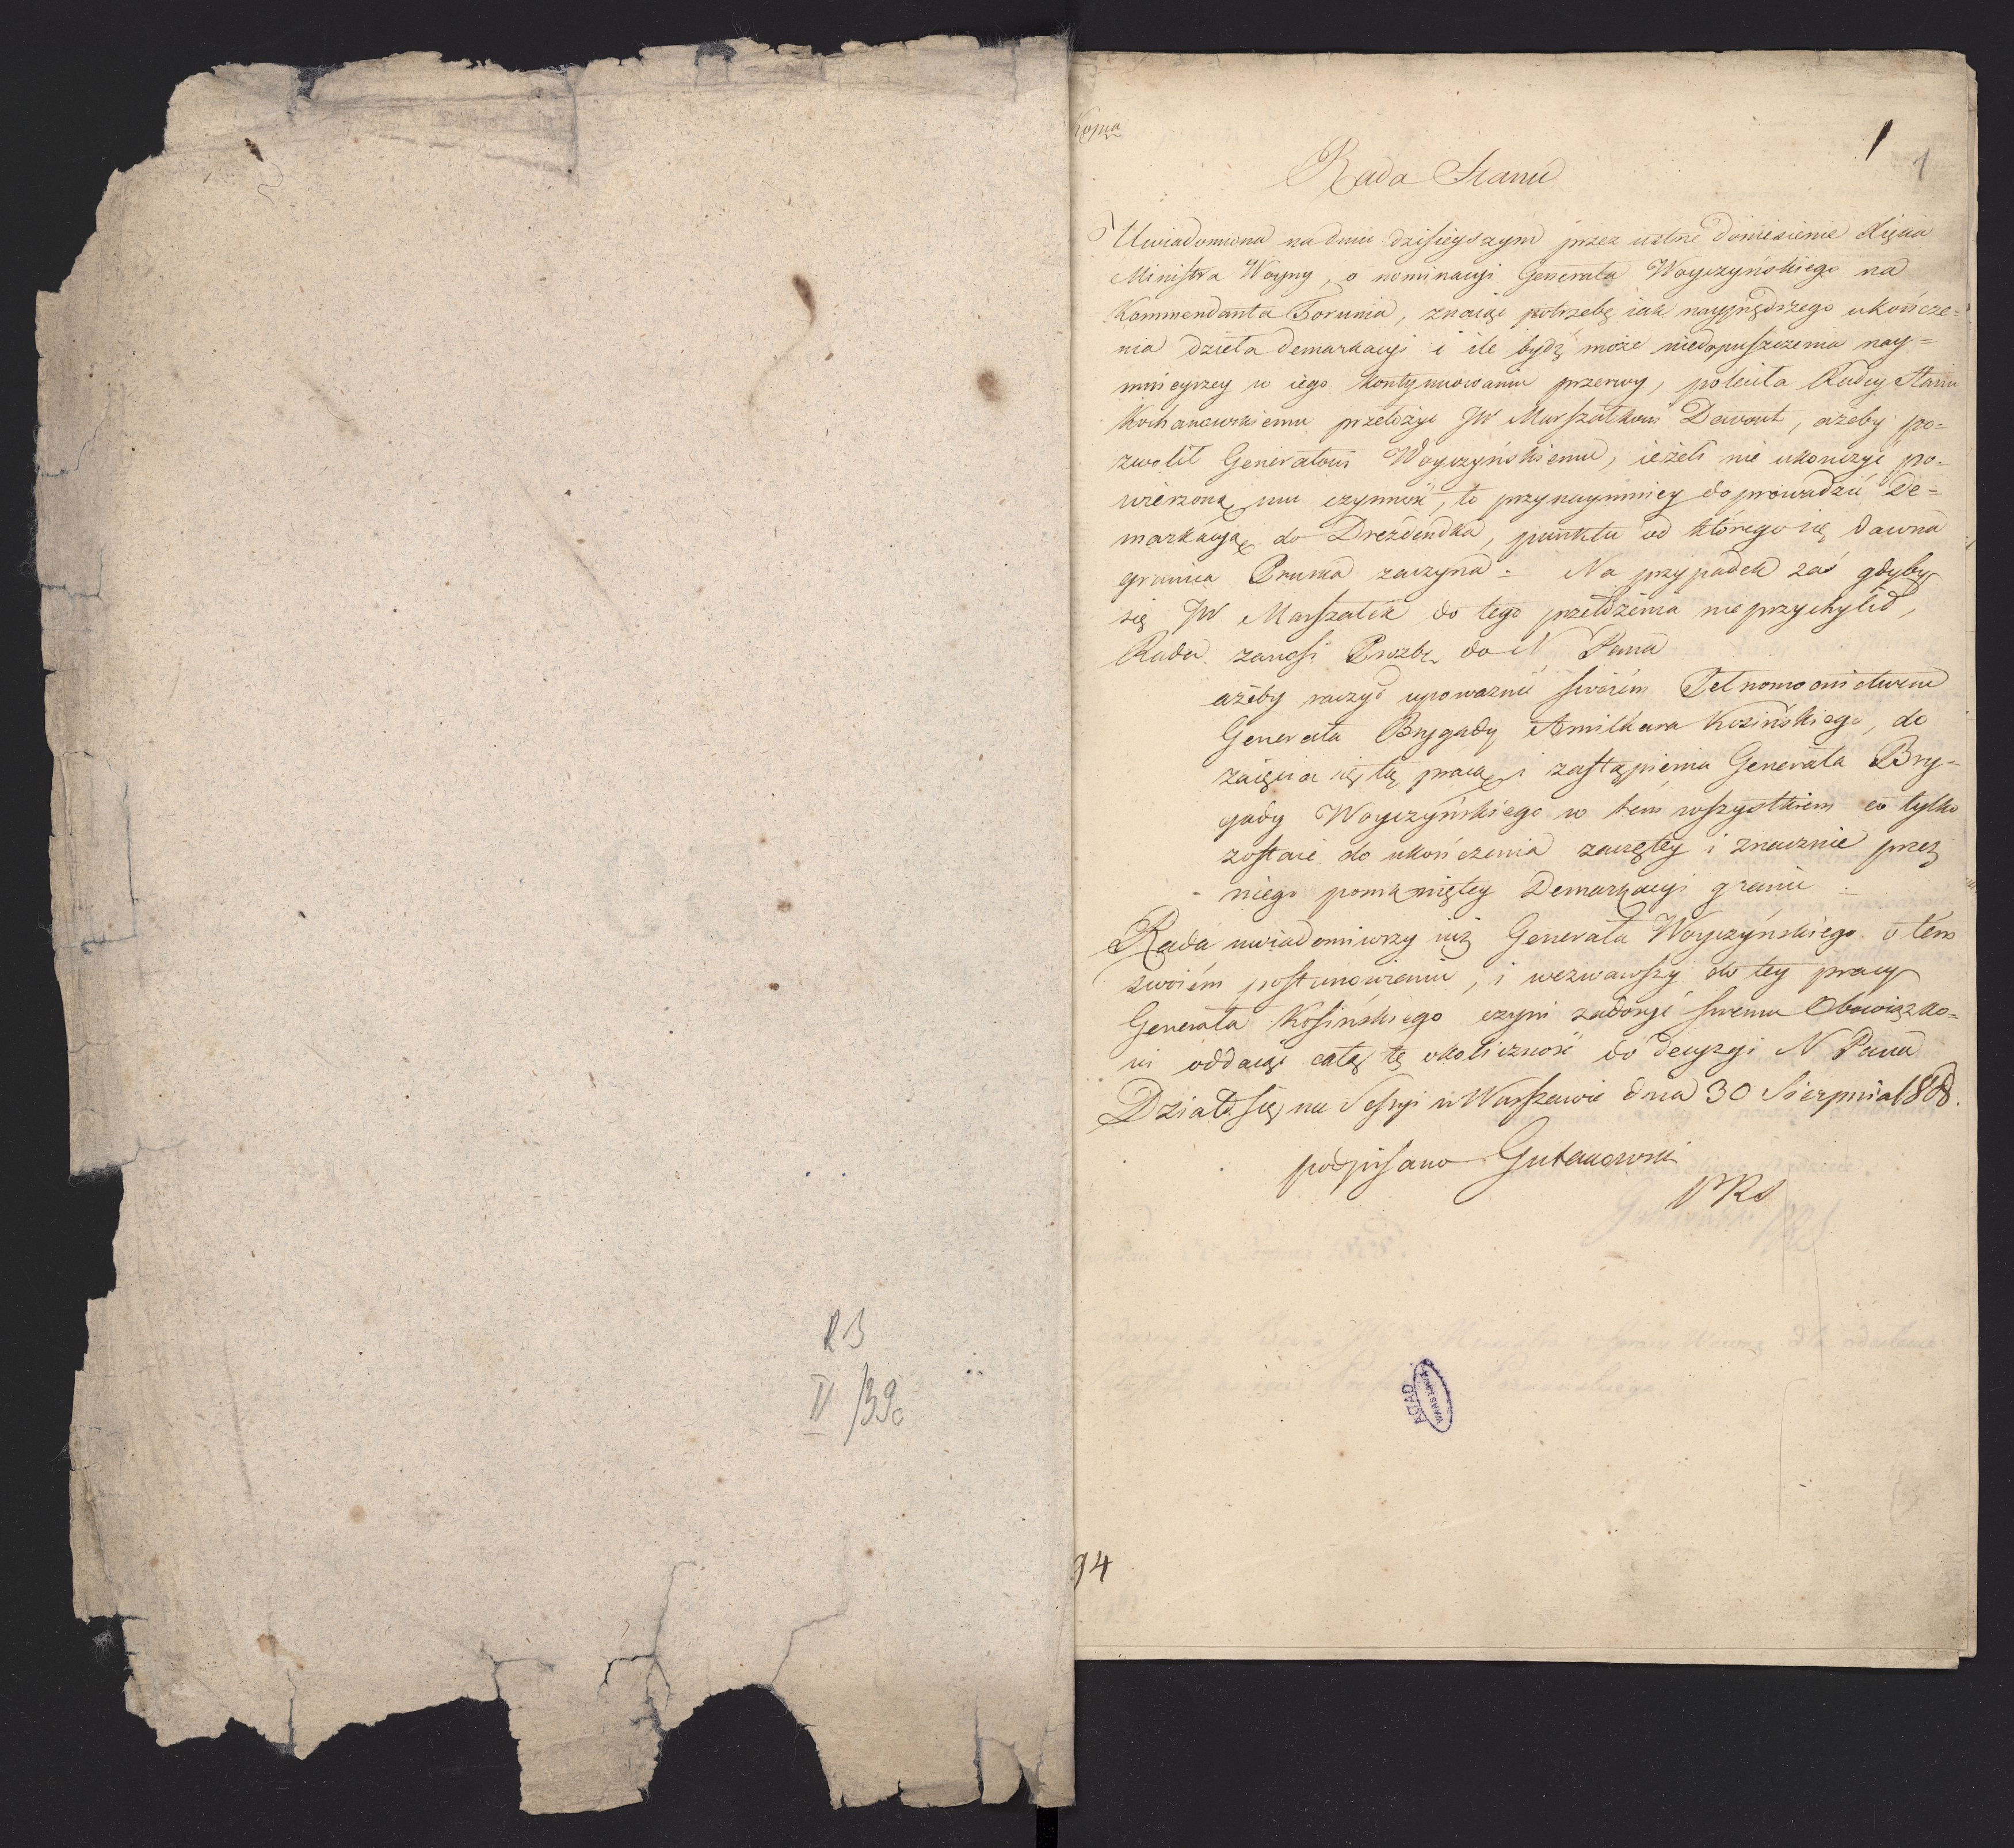 R3
II/39c
Kopia
1
1
Rada Stanu
Uwiadomiona na dniu dzisieyszym przez ustne doniesienie Xięcia
Ministra Woyny, o nominacyi Generała Woyczyńskiego na
Kommendanta Torunia, znaiąc potrzebę iak nayprędszego ukończe=
nia dzieła demarkacyi i ile bydź może niedopuszczenia nay=
mnieyszey w iego kontynuowaniu przerwy, poleciła Radcy Stanu
Kochanowskiemu przełożyć JW Marszałkowi Davout, ażeby po=
zwolił Generałowi Woyczyńskiemu, ieżeli nie ukończyć po=
wierzoną mu czynność, to przynaymniey doprowadzić De=
markacyą do Drezdenka, punktu od którego się dawna
granica Pruska zaczyna = Na przypadek zaś gdyby
się JW Marszałek do tego przełożenia nieprzychylił,
Rada zanosi Proźbę do N Pana
ażeby raczył upoważnić swoiém Pełnomocnictwem
Generała Brygady Amilkara Kosińskiego, do
zaięcia się tą pracą i zastąpienia Generała Bry=
gady Woyczyńskiego w tem wszystkiem co tylko
zostaie do ukończenia zaczętey i znacznie przez
niego pomkniętey Demarkacyi granic.
Rada uwiadomiwszy już Generała Woyczyńskiego o tém
swoiém postanowieniu, i wezwawszy do tey pracy
Generała Kosińskiego czyni zadosyć swemu Obowiązko=
wi oddaiąc całą tę okoliczność do decyzyi N Pana
Działo się na Sessyi w Warszawie dnia 30 Sierpnia 1808.
podpisano Gutakowski
PRS
AGAD
WARSZAWA
94